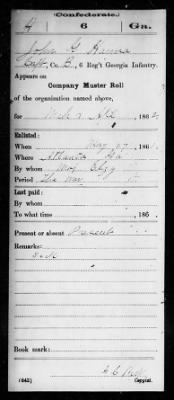 (Confederate.)
6 Ga.
John G. Hanna
Capt, Co. B, 6 Reg't Georgia Infantry.
Appears on
Company Muster Roll
of the organization named above,
for 186
Enlisted:
When May 27, 186
Where Atlanta Ga
By whom
Period The War
Last paid:
By whom
To what time , 186 .
Present or absent Present
Remarks:
Book mark:
(642) Copyist.